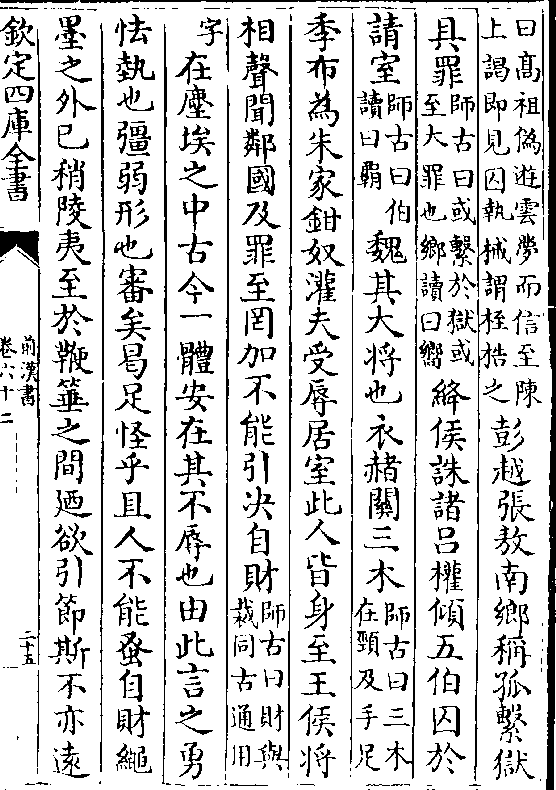 曰髙祖偽遊雲夢而信至陳
上謁即見囚執械謂桎梏之
彭越張敖南鄉稱孤繫獄
具罪
師古曰或繫於獄或
至大罪也鄉讀曰嚮
絳侯誅諸呂權傾五伯囚於
請室
師古曰伯
讀曰霸
魏其大将也衣赭關三木
師古曰三木
在頸及手足
季布為朱家鉗奴灌夫受辱居室此人皆身至王侯將
相聲聞鄰國及罪至罔加不能引决自財
師古曰財與
裁同古通用
字
在塵埃之中古今一體安在其不辱也由此言之勇
怯埶也彊弱形也審矣曷足怪乎且人不能蚤自財繩
墨之外已稍陵夷至於鞭箠之間廼欲引節斯不亦遠
欽定四庫全書
前漢書
卷六十二
二十五